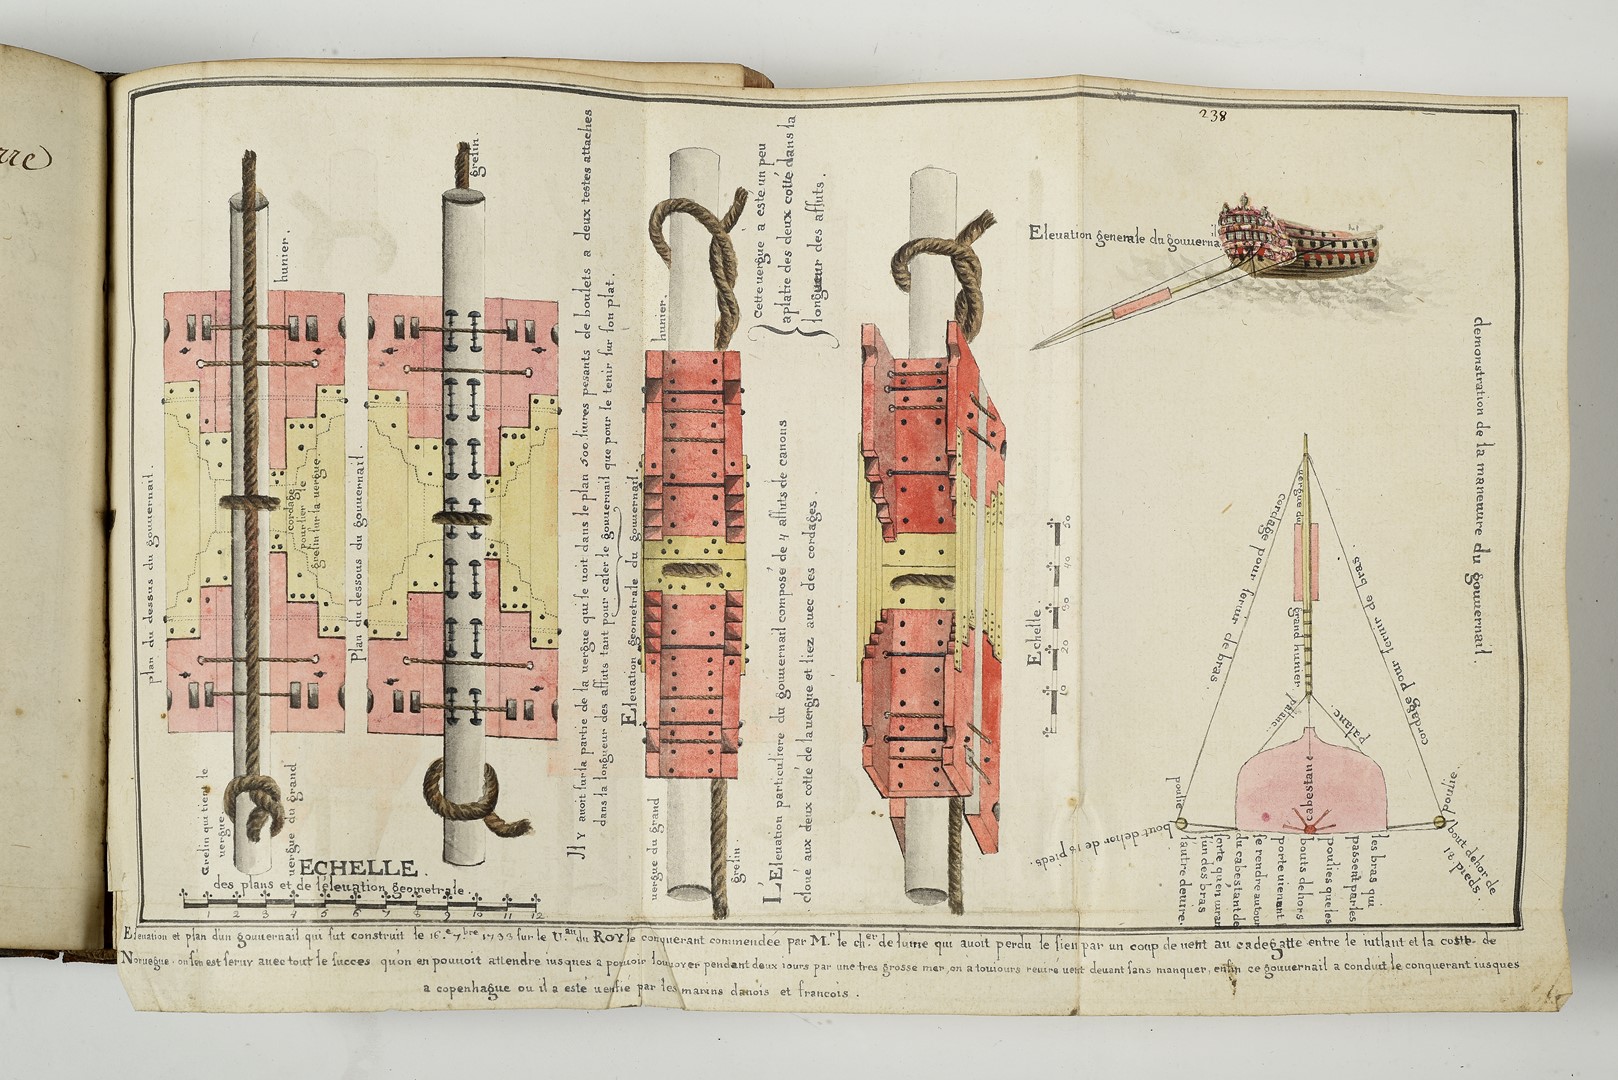 rre
238
plan du dessus du gouuernail.
hunier.
cordage
pour lier le
grelin sur la uergue
Grelin qui tient le
uergue.
uergue du grand
plan du dessous du gouuernail.
grelin.
ECHELLE.
des plans et de l'éleuation geometrale.
1 2 3 4 5 6 7 8 9 10 11 12
Il y auoit sur la partie de la uergue qui se uoit dans le plan 500 liures pesants de boulets a deux testes attaches
dans la longueur des affuts tant pour caler le gouuernail que pour le tenir sur son plat.
Eleuation geometrale du gouuernail.
hunier.
uergue du grand
grelin.
Cette uergue a esté un peu
aplatie des deux cotté dans la
longueur des affuts.
L'Eleuation particuliere du gouuernail composé de 4 affuts de canons
cloué aux deux cotté de la uergue et liez auec des cordages.
Echelle.
10 20 30 40 50
Eleuation generale du gouuernail
demonstration de la maneuure du gouuernail.
cordage pour seruir de bras.
uergue du
grand hunier
cordage pour seruir de bras
palanc.
palanc.
cabestan
poulie
bout dehor de 18 pieds.
poulie.
bout dehor de
12 pieds.
les bras qui
passent par les
poulies que les
bouts de hors
porte uienent
se rendre autour
du cabestant de
sorte qu'en uirant
l'un des bras
l'autre deuire.
Eleuation et plan d'un gouuernail qui fut construit le 16.e 7.bre 1733 sur le U.au du ROY le conquerant commendée par M.r le ch.er de luine qui auoit perdu le sien par un coup de uent au cadegatte entre le iutlant et la coste de
Noruegue. on s'en est seruy auec tout le succes qu'on en pouuoit attendre iusques a pouuoir louuoyer pendent deux iours par une tres grosse mer, on a touiours reuiré uent deuant sans manquer, enfin ce gouuernail a conduit le conquerant iusques
a copenhague ou il a esté uenfie par les marins danois et francois.